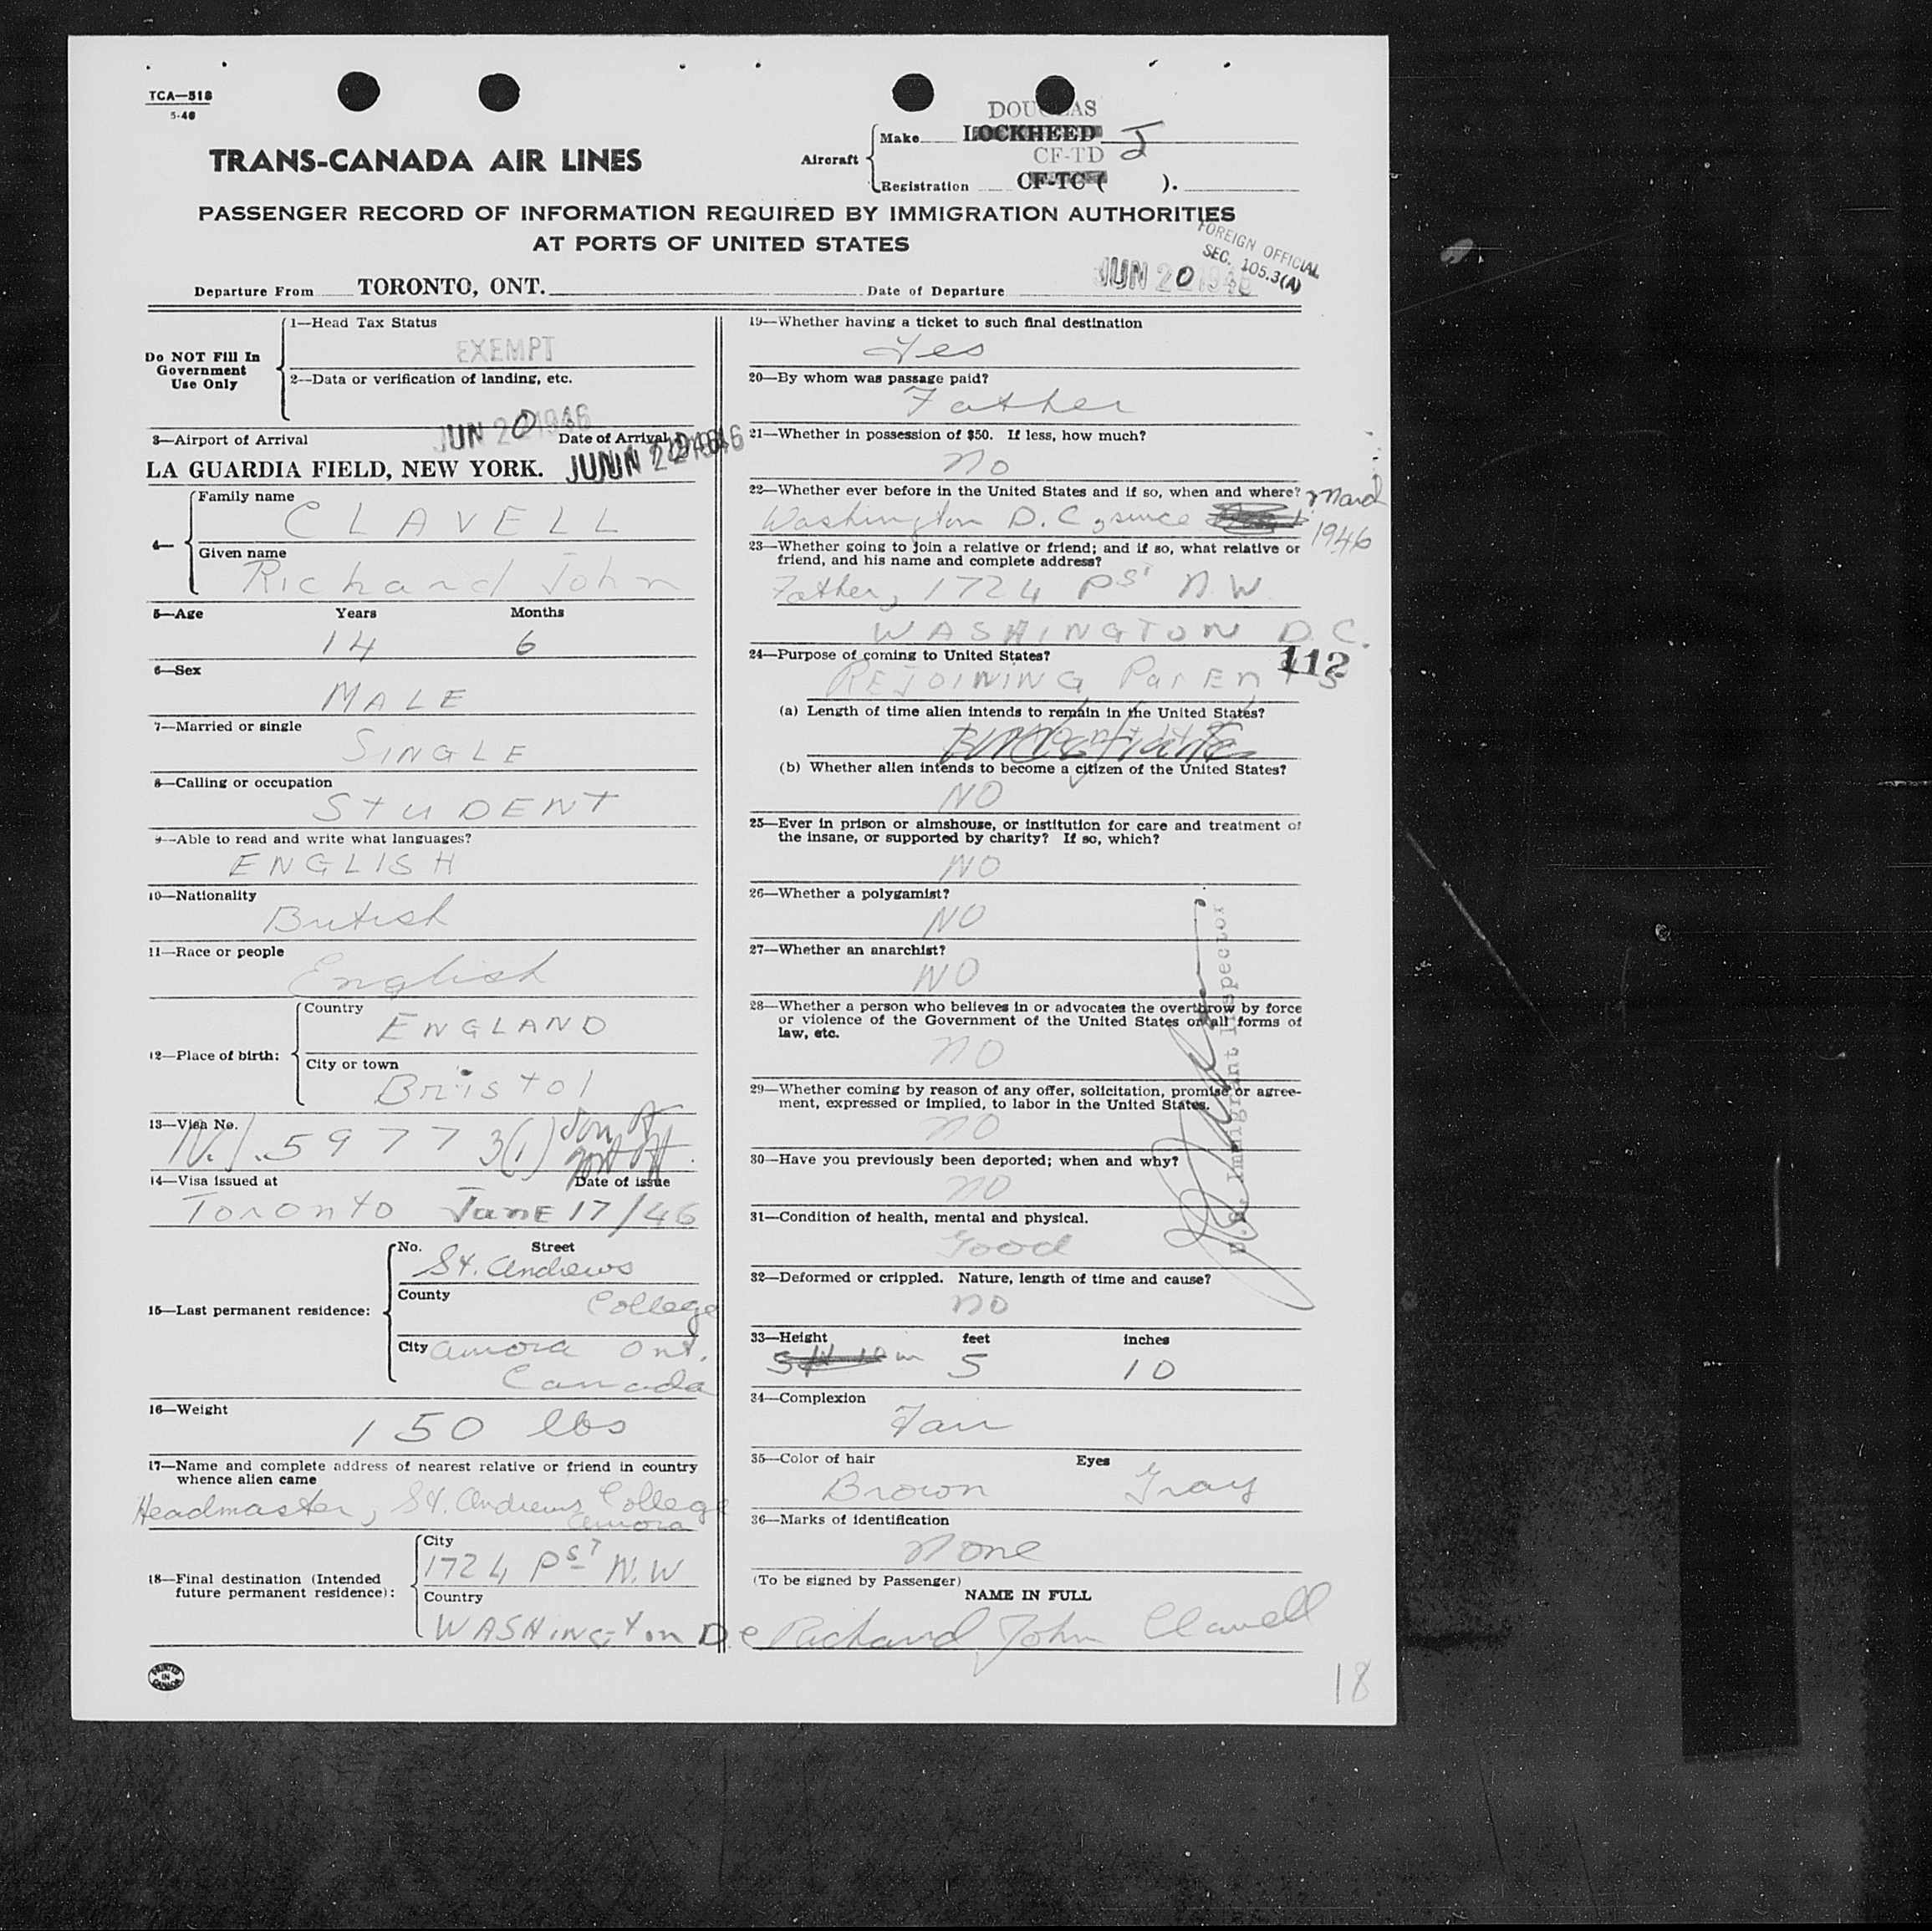 TCA—518
5-46
TRANS-CANADA AIR LINES
Aircraft
Make
DOUGLAS
LOCKHEED J
CF-TD
Registration CF-TC ( ).
PASSENGER RECORD OF INFORMATION REQUIRED BY IMMIGRATION AUTHORITIES
AT PORTS OF UNITED STATES
FOREIGN OFFICIAL
SEC. 105.3(A)
Departure From TORONTO, ONT. Date of Departure JUN 20 1946
Do NOT Fill In
Government
Use Only
1—Head Tax Status
EXEMPT
2—Data or verification of landing, etc.
JUN 20 1946
3—Airport of Arrival Date of Arrival
LA GUARDIA FIELD, NEW YORK.
4—
Family name
CLAVELL
Given name
Richard John
5—Age Years Months
14 6
6—Sex
MALE
7—Married or single
SINGLE
8—Calling or occupation
STUDENT
9—Able to read and write what languages?
ENGLISH
10—Nationality
British
11—Race or people
English
12—Place of birth:
Country
ENGLAND
City or town
Bristol
13—Visa No.
N.I. 5977 3(1) Son of
govt off.
14—Visa issued at Date of issue
Toronto June 17/46
15—Last permanent residence:
No. Street
St. Andrews
County
College
City Aurora Ont.
Canada
16—Weight
150 lbs
17—Name and complete address of nearest relative or friend in country
whence alien came
Headmaster, St. Andrews College
Aurora
18—Final destination (Intended
future permanent residence):
City
1724 P ST N.W
Country
WASHINGton D.C
19—Whether having a ticket to such final destination
Yes
20—By whom was passage paid?
Father
21—Whether in possession of $50. If less, how much?
No
22—Whether ever before in the United States and if so, when and where?
Washington D.C, since March
1946
23—Whether going to join a relative or friend; and if so, what relative or
friend, and his name and complete address?
Father, 1724 P ST N.W
WASHINGTON D.C.
24—Purpose of coming to United States? 112
REJOINING ParEnts
(a) Length of time alien intends to remain in the United States?
(b) Whether alien intends to become a citizen of the United States?
NO
25—Ever in prison or almshouse, or institution for care and treatment of
the insane, or supported by charity? If so, which?
NO
26—Whether a polygamist?
NO
27—Whether an anarchist?
NO
28—Whether a person who believes in or advocates the overthrow by force
or violence of the Government of the United States or all forms of
law, etc.
NO
29—Whether coming by reason of any offer, solicitation, promise or agree-
ment, expressed or implied, to labor in the United States.
NO
30—Have you previously been deported; when and why?
NO
U.S. Immigrant Inspector
31—Condition of health, mental and physical.
Good
32—Deformed or crippled. Nature, length of time and cause?
No
33—Height feet inches
5 10
34—Complexion
Fair
35—Color of hair Eyes
Brown Gray
36—Marks of identification
None
(To be signed by Passenger)
NAME IN FULL
Richard John Clavell
PRINTED
IN
CANADA
18